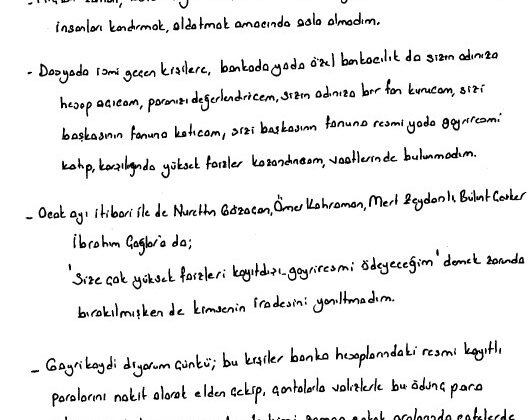 insanları kandırmak, aldatmak amacında asla olmadım.
- Dosyada ismi geçen kişilere, bankada yada özel bankacılık da sizin adınıza
hesap açıcam, paranızı değerlendiricem, sizin adınıza bir fon kurucam, sizi
başkasının fonuna katıcam, sizi başkasının fonuna resmi yada gayriresmi
katıp, karşılığında yüksek faizler kazandırıcam, vaatlerinde bulunmadım.
- Ocak ayı itibari ile de Nurettin Gözaçan, Ömer Kahraman, Mert Zeydanlı, Bülent Çeviker
İbrahim Çağlar'a da;
'Size çok yüksek faizleri kayıtdışı-gayriresmi ödeyeceğim' demek zorunda
bırakılmışken de kimsenin iradesini yanıltmadım.
- Gayrikaydi diyorum çünkü; bu kişiler banka hesaplarındaki resmi kayıtlı
paralarını nakit olarak elden çekip, çantalarla valizlerle bu ödünç para